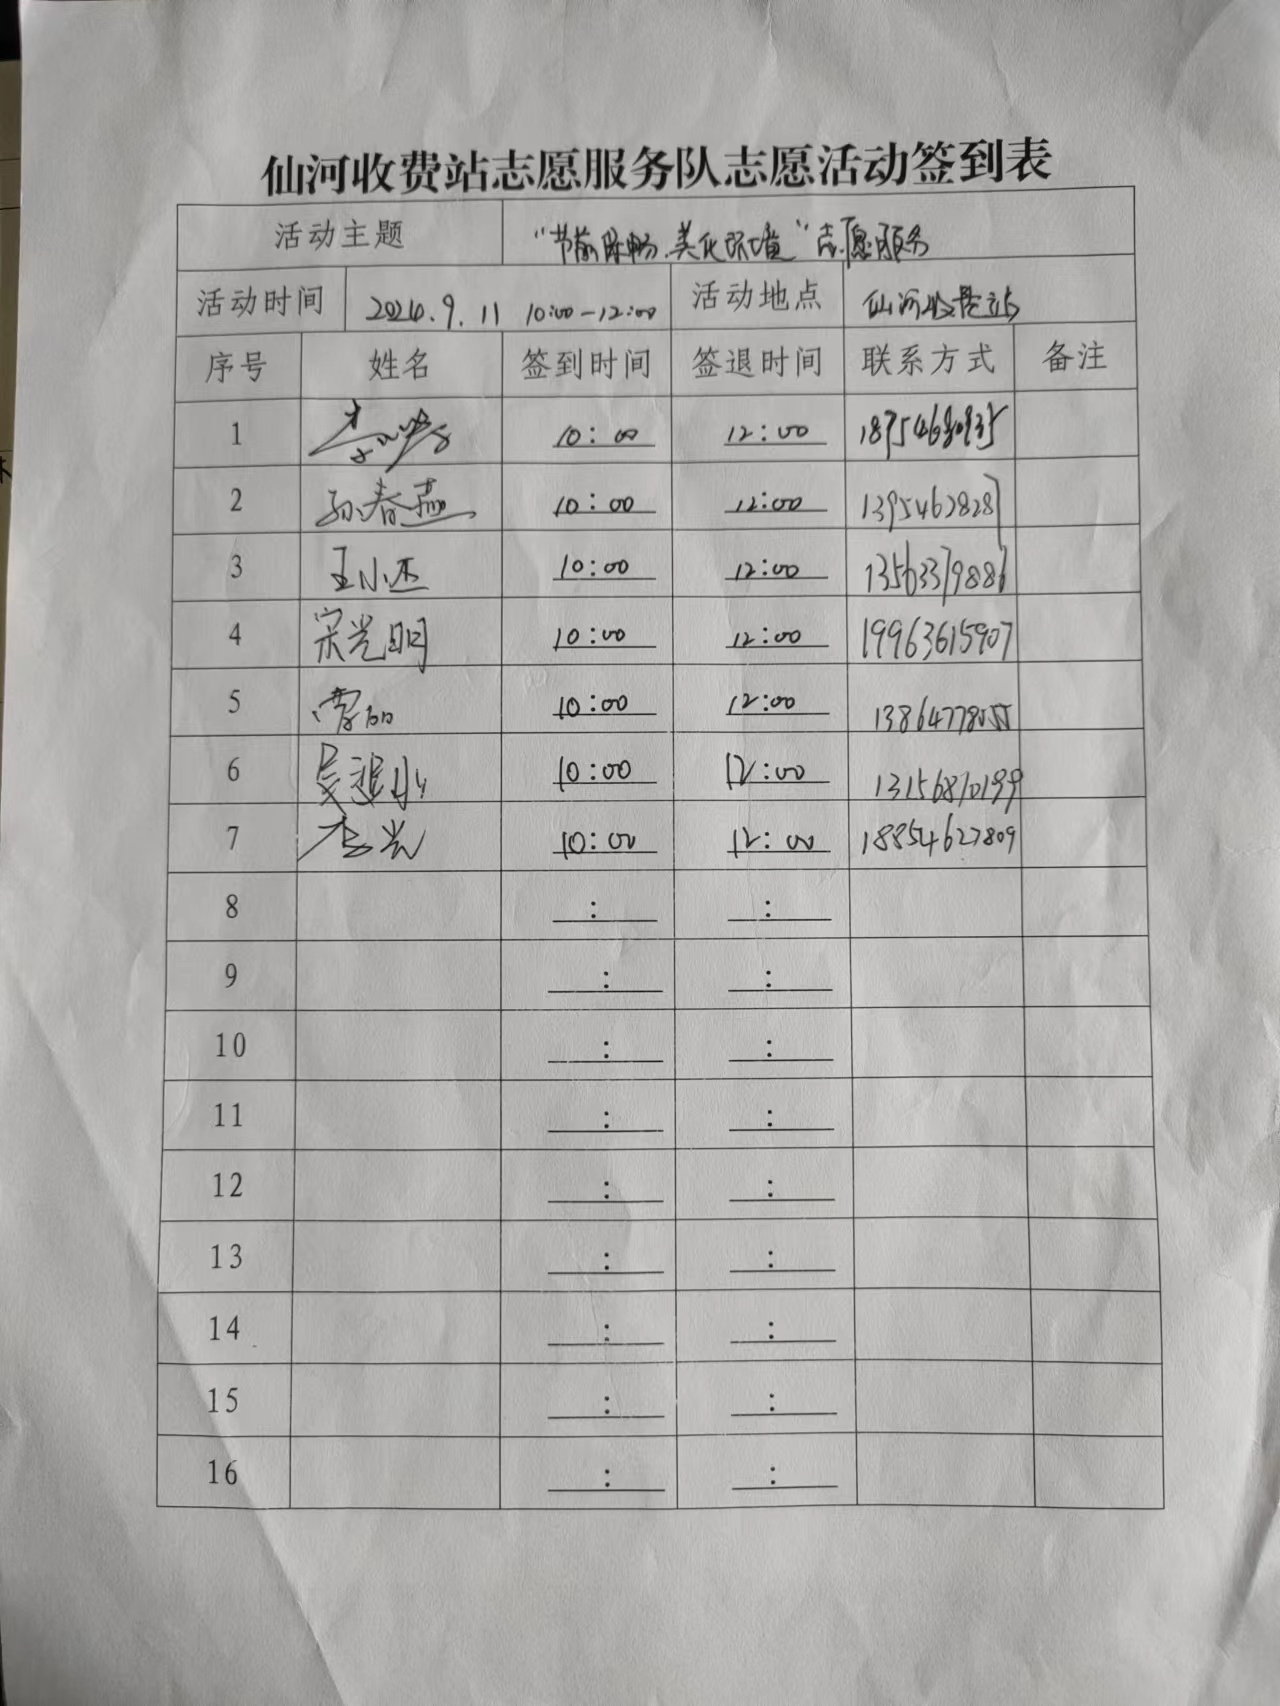 仙河收费站志愿服务队志愿活动签到表
活动主题 "节前保畅.美化环境"志愿服务
活动时间 2024.9.11 10:00-12:00 活动地点 仙河收费站
序号 姓名 签到时间 签退时间 联系方式 备注
1 10:00 12:00
2 孙春燕 10:00 12:00 13954628287
3 王小 10:00 12:00 13563379886
4 宋光明 10:00 12:00 19963615907
5 10:00 12:00
6 10:00 12:00 13156870199
7 李光 10:00 12:00 18854627809
8 : :
9 : :
10 : :
11 : :
12 : :
13 : :
14 : :
15 : :
16 : :